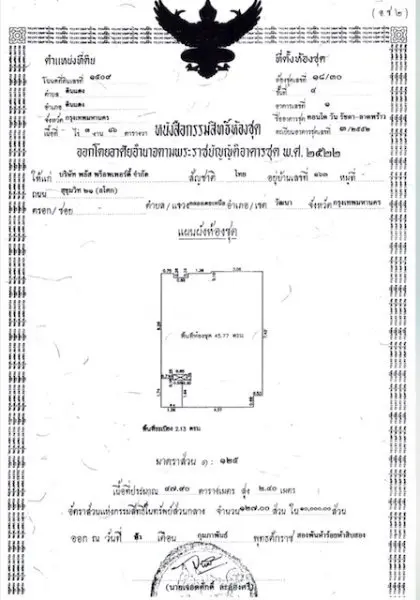 (อ.ช.๒)
ตำแหน่งที่ดิน
ที่ตั้งห้องชุด
โฉนดที่ดินเลขที่ ๑๕๐๙
ห้องชุดเลขที่ ๑๘/๓๐
ตำบล ดินแดง
ชั้นที่ ๔
อำเภอ ดินแดง
อาคารเลขที่ ๑
จังหวัด กรุงเทพมหานคร
ชื่ออาคารชุด คอนโด วัน รัชดา-ลาดพร้าว
เนื้อที่ ไร่ ๓ งาน ตารางวา
ทะเบียนอาคารชุดเลขที่ ๓/๒๕๕๒
หนังสือกรรมสิทธิ์ห้องชุด
ออกโดยอาศัยอำนาจตามพระราชบัญญัติอาคารชุด พ.ศ. ๒๕๒๒
ให้แก่ บริษัท พลัส พร็อพเพอร์ตี้ จำกัด สัญชาติ ไทย อยู่บ้านเลขที่ ๑๖๓ หมู่ที่ -
ถนน สุขุมวิท ๒๑ (อโศก) ตำบล/แขวง คลองเตยเหนือ อำเภอ/เขต วัฒนา จังหวัด กรุงเทพมหานคร
ตรอก/ซอย
แผนผังห้องชุด
0.70 1.36 7.05
8.29
พื้นที่ห้องชุด 45.77 ตรม.
7.42
1.74
1.94
0.50
1.26 4.57
พื้นที่ระเบียง 2.13 ตรม.
มาตราส่วน ๑ : ๑๒๕
เนื้อที่ประมาณ ๔๗.๙๐ ตารางเมตร สูง ๒.๔๐ เมตร
อัตราส่วนแห่งกรรมสิทธิ์ในทรัพย์ส่วนกลาง จำนวน ๑๒๗.๐๐ ส่วน ใน ๑๐,๐๐๐.๐๐ ส่วน
ออก ณ วันที่ เดือน กุมภาพันธ์ พุทธศักราช สองพันห้าร้อยห้าสิบสอง